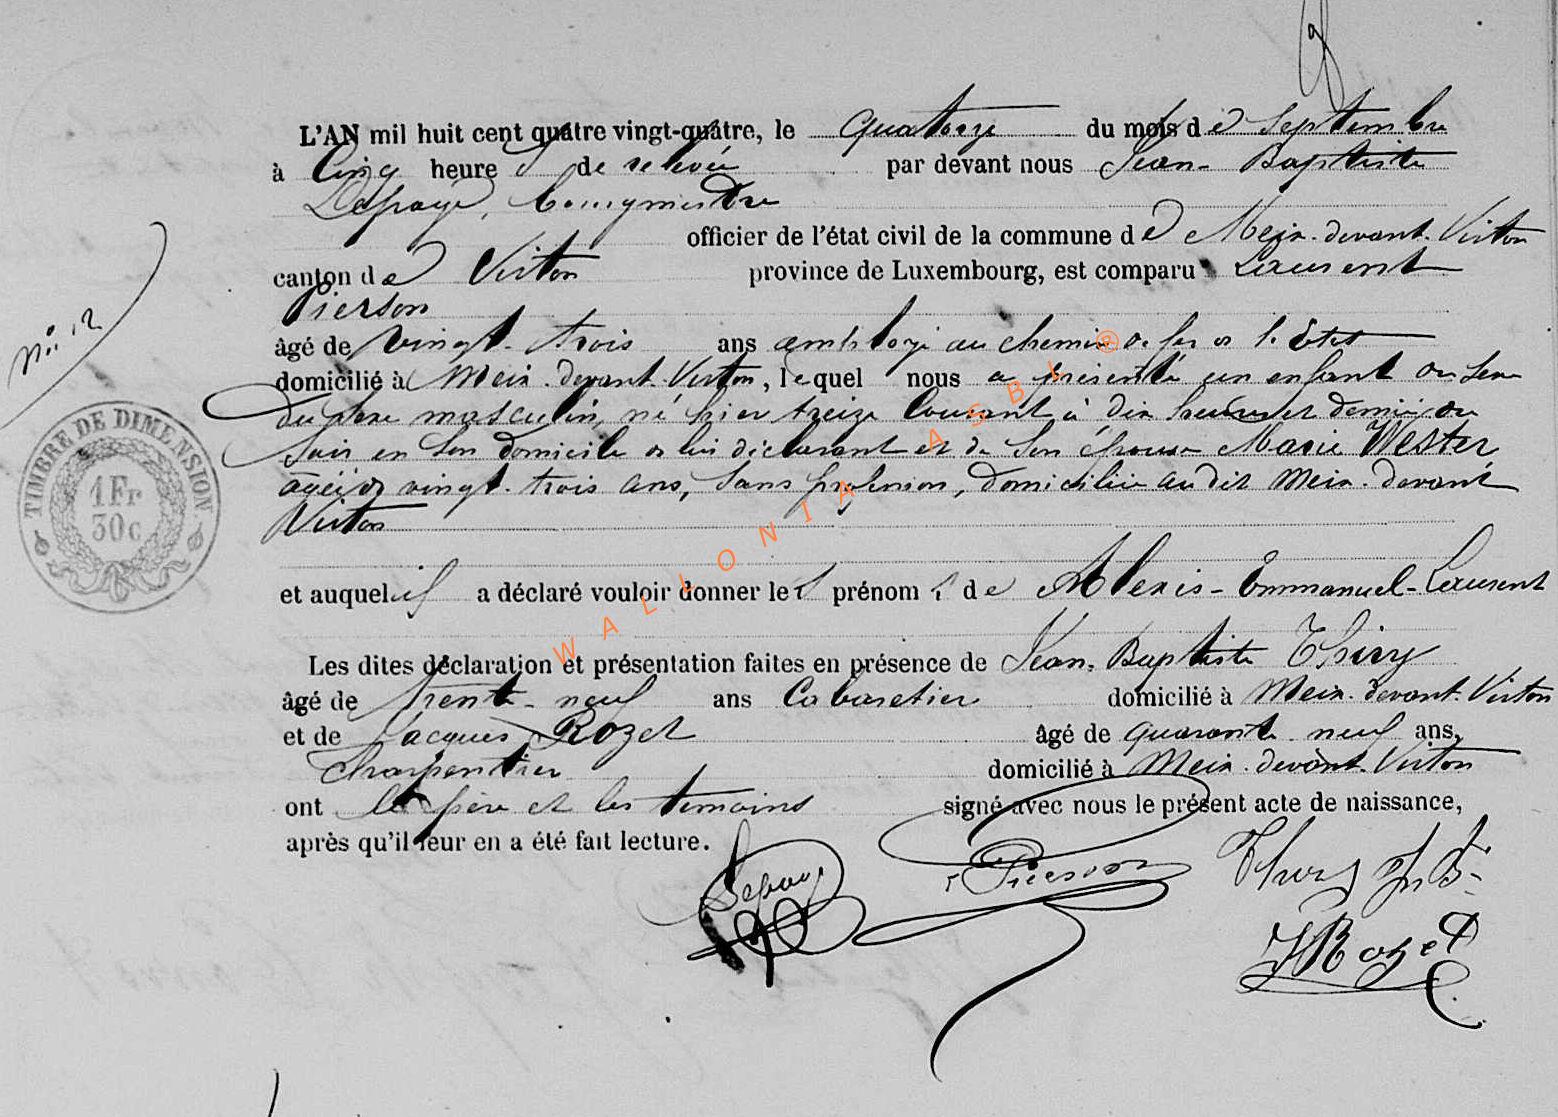 L'AN mil huit cent quatre vingt-quatre, le quatorze du mois de Septembre
à Cinq heures de relevée par devant nous Jean-Baptiste
Lepage, bourgmestre
officier de l'état civil de la commune de Meix-devant-Virton
canton de Virton province de Luxembourg, est comparu Laurent
Pierson
âgé de vingt-trois ans employé au chemin de fer de l'Etat
domicilié à Meix-devant-Virton, lequel nous a présenté un enfant du sexe
du sexe masculin, né hier treize courant à dix heures et demie du
soir en son domicile de lui déclarant et de son épouse Marie Wester,
agée de vingt-trois ans, sans profession, domiciliée audit Meix-devant
Virton
et auquel il a déclaré vouloir donner les prénoms de Alexis-Emmanuel-Laurent
Les dites déclaration et présentation faites en présence de Jean-Baptiste Thiry
âgé de trente-neuf ans Cabaretier domicilié à Meix-devant-Virton
et de Jacques Rozet âgé de quarante neuf ans,
Charpentier domicilié à Meix-devant-Virton
ont le père et les témoins signé avec nous le présent acte de naissance,
après qu'il leur en a été fait lecture.
Lepage Pierson Thiry J. Bt.
J Rozet
No 12
TIMBRE DE DIMENSION
1 Fr
30c
WALLONIA ASBL ®